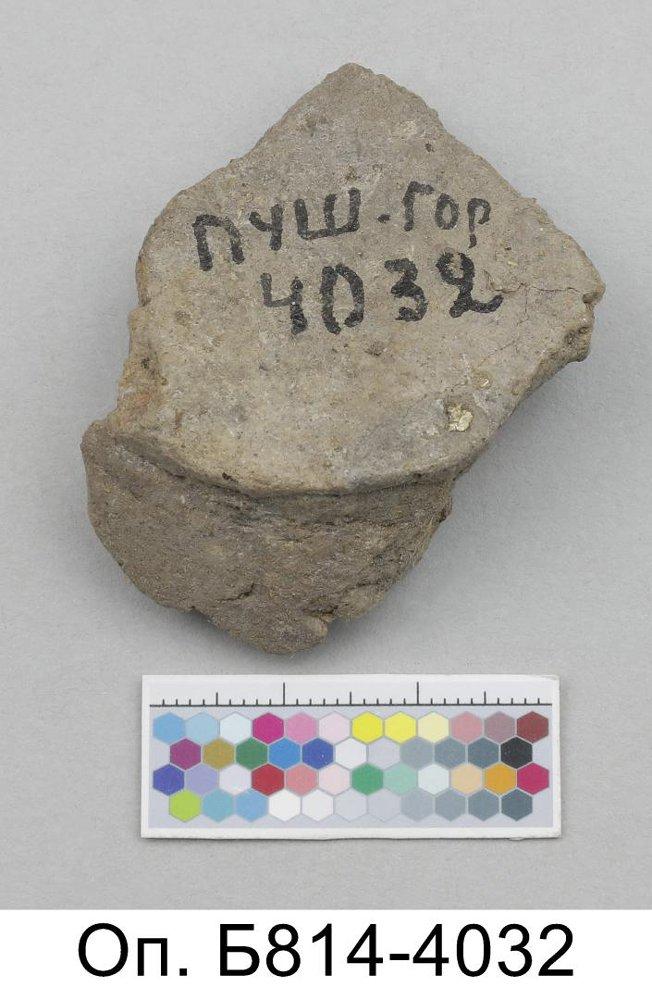 ПУШ-ГОР
4032
Оп. Б814-4032